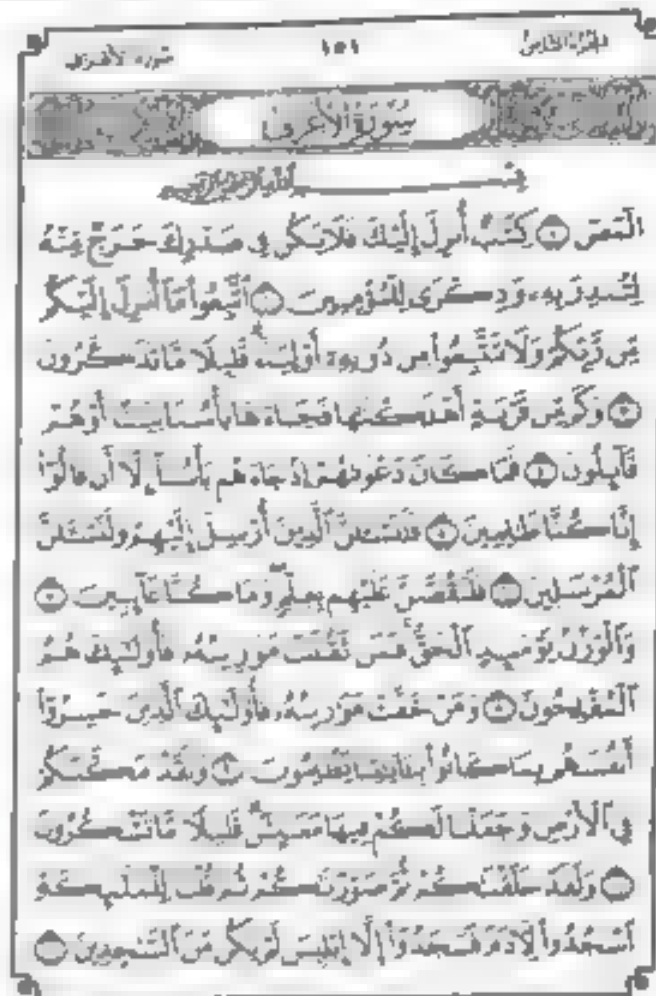 الجزء الثامن ١٥١ سورة الأعراف
سُورَةُ الأَعْرَافِ
بِسْمِ اللَّهِ الرَّحْمَٰنِ الرَّحِيمِ
الٓمٓصٓ ١ كِتَٰبٌ أُنزِلَ إِلَيْكَ فَلَا يَكُن فِي صَدْرِكَ حَرَجٌ مِّنْهُ
لِتُنذِرَ بِهِۦ وَذِكْرَىٰ لِلْمُؤْمِنِينَ ٢ ٱتَّبِعُوا۟ مَآ أُنزِلَ إِلَيْكُم
مِّن رَّبِّكُمْ وَلَا تَتَّبِعُوا۟ مِن دُونِهِۦٓ أَوْلِيَآءَ ۗ قَلِيلًا مَّا تَذَكَّرُونَ
٣ وَكَم مِّن قَرْيَةٍ أَهْلَكْنَٰهَا فَجَآءَهَا بَأْسُنَا بَيَٰتًا أَوْ هُمْ
قَآئِلُونَ ٤ فَمَا كَانَ دَعْوَىٰهُمْ إِذْ جَآءَهُم بَأْسُنَآ إِلَّآ أَن قَالُوٓا۟
إِنَّا كُنَّا ظَٰلِمِينَ ٥ فَلَنَسْـَٔلَنَّ ٱلَّذِينَ أُرْسِلَ إِلَيْهِمْ وَلَنَسْـَٔلَنَّ
ٱلْمُرْسَلِينَ ٦ فَلَنَقُصَّنَّ عَلَيْهِم بِعِلْمٍ ۖ وَمَا كُنَّا غَآئِبِينَ ٧
وَٱلْوَزْنُ يَوْمَئِذٍ ٱلْحَقُّ ۚ فَمَن ثَقُلَتْ مَوَٰزِينُهُۥ فَأُو۟لَٰٓئِكَ هُمُ
ٱلْمُفْلِحُونَ ٨ وَمَنْ خَفَّتْ مَوَٰزِينُهُۥ فَأُو۟لَٰٓئِكَ ٱلَّذِينَ خَسِرُوٓا۟
أَنفُسَهُم بِمَا كَانُوا۟ بِـَٔايَٰتِنَا يَظْلِمُونَ ٩ وَلَقَدْ مَكَّنَّٰكُمْ
فِي ٱلْأَرْضِ وَجَعَلْنَا لَكُمْ فِيهَا مَعَٰيِشَ ۗ قَلِيلًا مَّا تَشْكُرُونَ
١٠ وَلَقَدْ خَلَقْنَٰكُمْ ثُمَّ صَوَّرْنَٰكُمْ ثُمَّ قُلْنَا لِلْمَلَٰٓئِكَةِ
ٱسْجُدُوا۟ لِـَٔادَمَ فَسَجَدُوٓا۟ إِلَّآ إِبْلِيسَ لَمْ يَكُن مِّنَ ٱلسَّٰجِدِينَ ١١